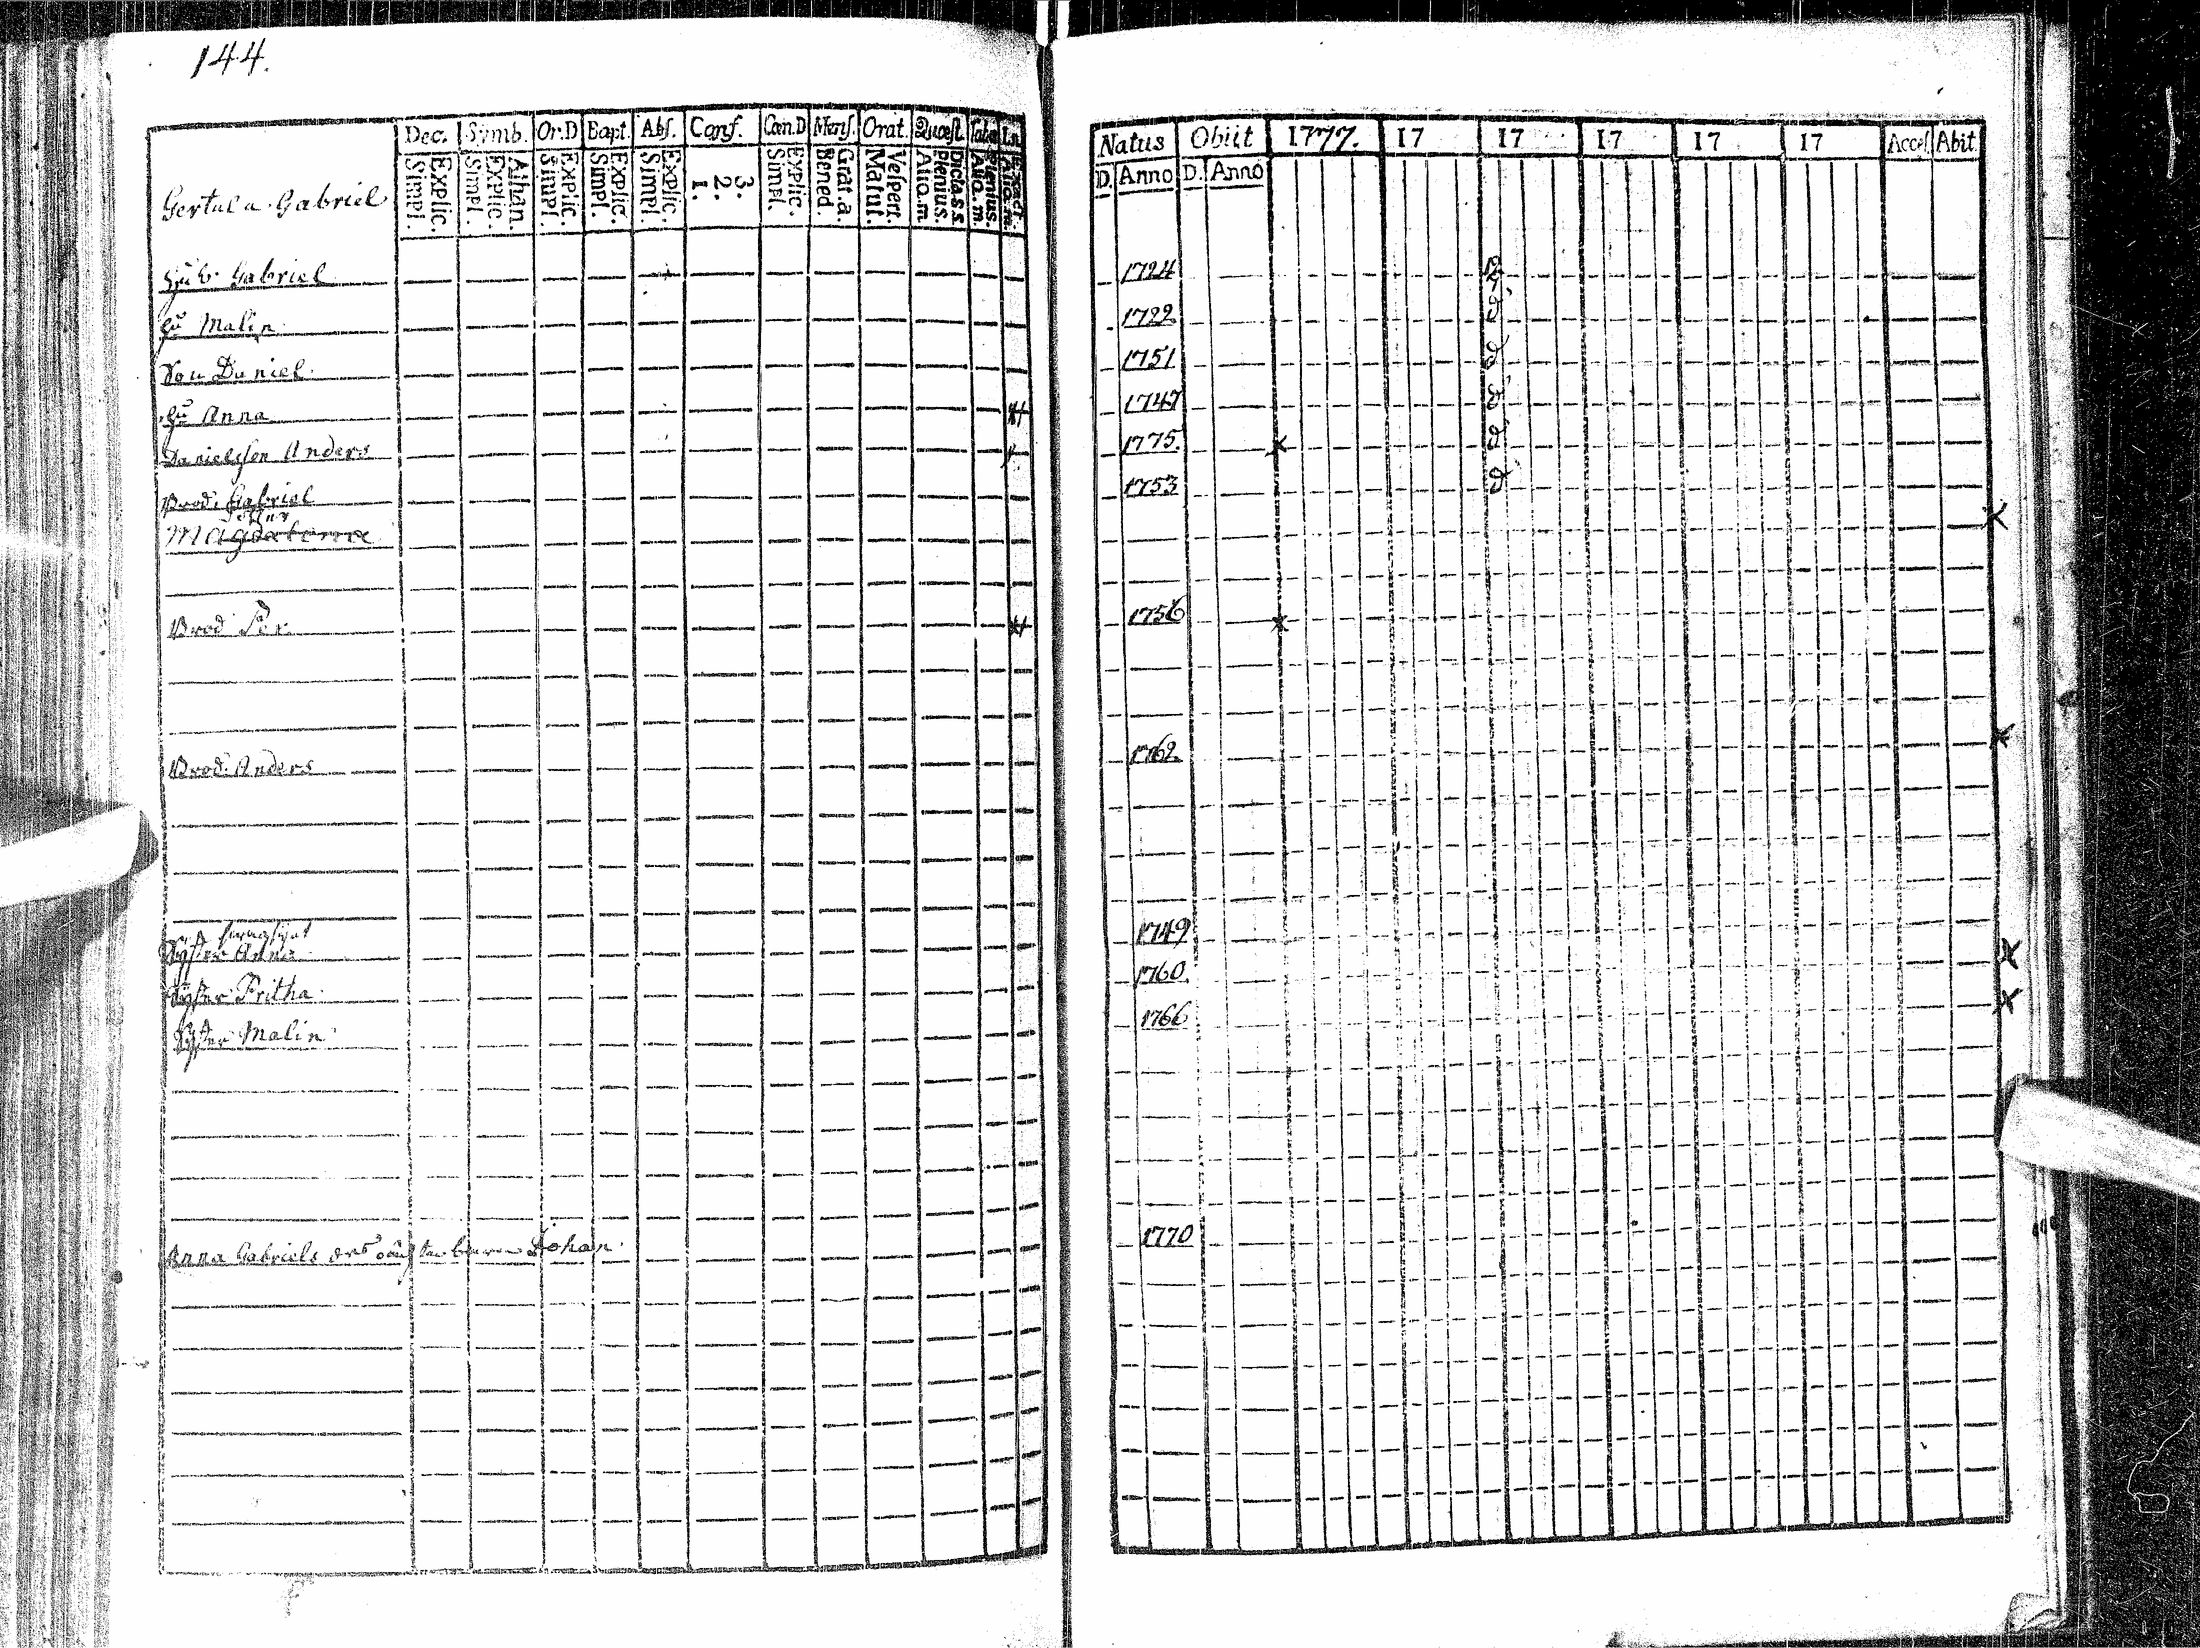 144.
Dec. Symb. Or.D Bapt. Abſ. Conf. Cœn.D Menſ. Orat. Quæſt.
Explic. Simpl. Athan. Explic. Simpl. Explic. Simpl. Explic. Simpl. Explic. Simpl. 3. 2. 1. Explic. Simpl. Grat. a. Bened. Veſpert. Matut. Dicta.s.s. Plenius. Alio.m. Plenius. Alio.m. Exact. Alio.m.
Gertula Gabriel
Gabriel
hu Malin
Son Daniel
hu Anna
Danielsson Anders
Brod. Gabriel
Magdalena
Brod Pär
Brod. Anders
Syster Anna
Syster Britha
Syster Malin
Anna Gabriels Johan
Natus Obiit 1777. 17 17 17 17 17 Acceſ. Abit.
D. Anno D. Anno
1724
1722
1751
1747
1775.
1753
1756
1762
1749
1760
1766
1770